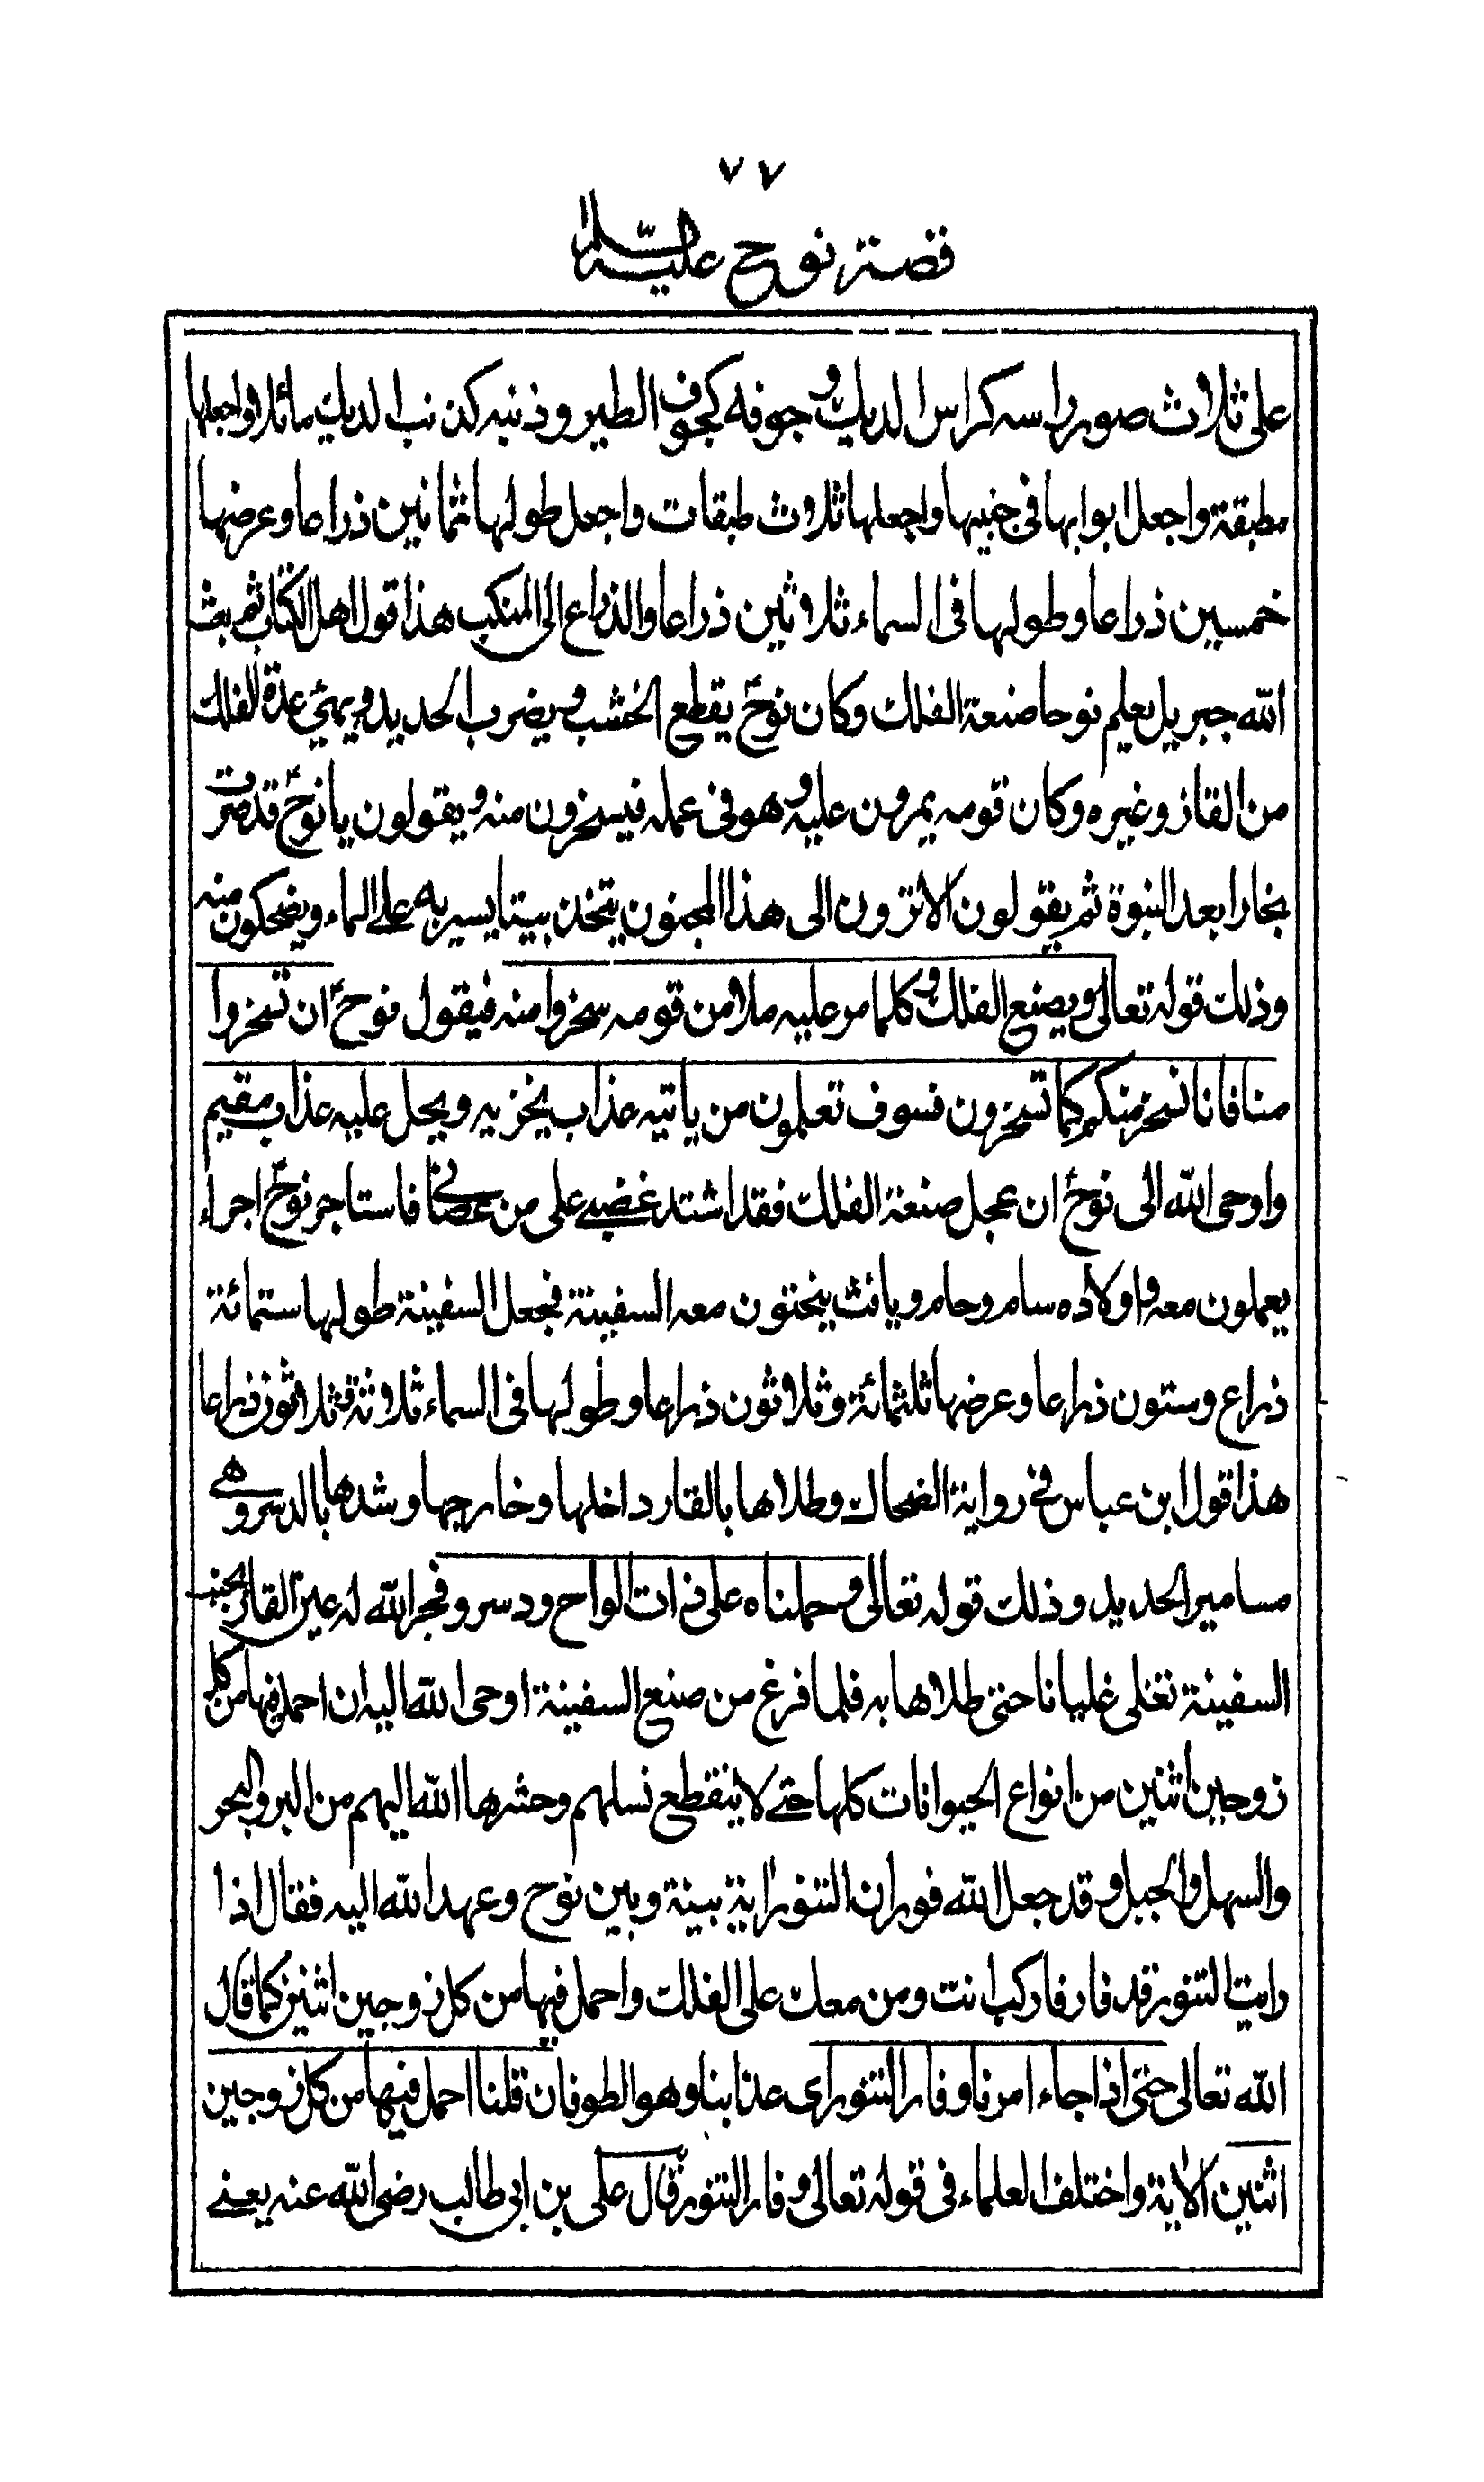 ٧٧
قصة نوح عليه السلام
على ثلاث صور راسه كراس الديك وجوفه كجوف الطير وذنبه كذنب الديك مائلا واجعلها
مطبقة واجعل ابوابها في جنبيها واجعلها ثلاث طبقات واجعل طولها ثمانين ذراعا وعرضها
خمسين ذراعا وطولها في السماء ثلاثين ذراعا والذراع الى المنكب هذا قول اهل الكتاب ثم بعث
الله جبريل يعلم نوحا صنعة الفلك وكان نوح يقطع الخشب ويضرب الحديد ويهيئ عدة الفلك
من القار وغيره وكان قومه يمرون عليه وهو في عمله فيسخرون منه ويقولون يا نوح قد صرت
نجارا بعد النبوة ثم يقولون الا ترون الى هذا المجنون يتخذ بيتا يسير به على الماء ويضحكون منه
وذلك قوله تعالى ويصنع الفلك وكلما مر عليه ملا من قومه سخروا منه فيقول نوح ان تسخروا
منا فانا نسخر منكم كما تسخرون فسوف تعلمون من ياتيه عذاب يخزيه ويحل عليه عذاب مقيم
واوحى الله الى نوح ان عجل صنعة الفلك فقد اشتد غضبي على من عصاني فاستاجر نوح اجراء
يعملون معه واولاده سام وحام ويافث ينحتون معه السفينة فجعل السفينة طولها ستمائة
ذراع وستون ذراعا وعرضها ثلثمائة وثلاثون ذراعا وطولها في السماء ثلاثة وثلاثون ذراعا
هذا قول ابن عباس في رواية الضحاك وطلاها بالقار داخلها وخارجها وشدها بالدسر وهي
مسامير الحديد وذلك قوله تعالى وحملناه على ذات الواح ودسر وفجر الله له عين القار بجنب
السفينة تغلى غليانا حتى طلاها به فلما فرغ من صنع السفينة اوحى الله اليه ان احمل فيها من كل
زوجين اثنين من انواع الحيوانات كلها حتى لا ينقطع نسلهم وحشرها الله اليهم من البر والبحر
والسهل والجبل وقد جعل الله فوران التنور اية بينة وبين نوح وعهد الله اليه فقال اذا
رايت التنور قد فار فاركب انت ومن معك على الفلك واحمل فيها من كل زوجين اثنين كما قال
الله تعالى حتى اذا جاء امرنا وفار التنور اى عذابنا وهو الطوفان قلنا احمل فيها من كل زوجين
اثنين الاية واختلف العلماء في قوله تعالى وفار التنور قال على بن ابى طالب رضى الله عنه يعني